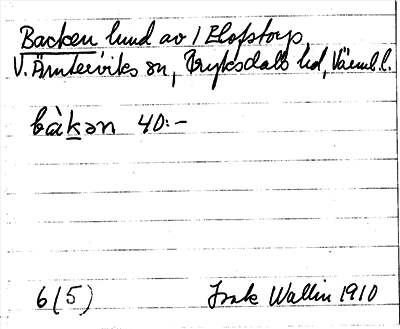 Backen lund av 1 Elofstorp,
V. Ämterviks sn, Fryksdals hd, Värml. l.
bàkən 40:-
6(5) Isak Wallin 1910